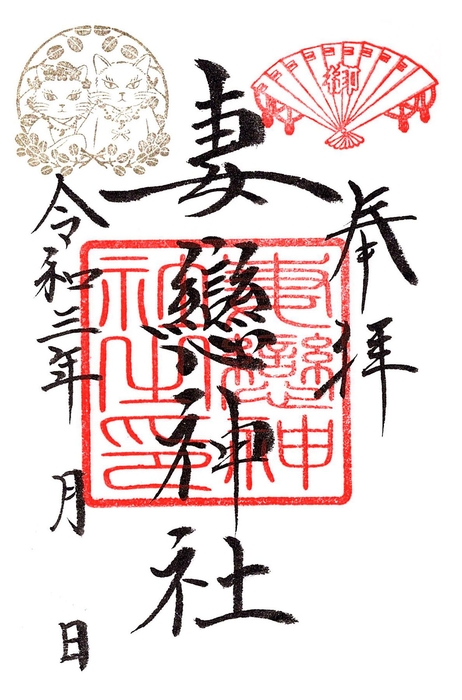 奉拝
御
妻戀神社
妻戀神
社之印
令和三年 月 日